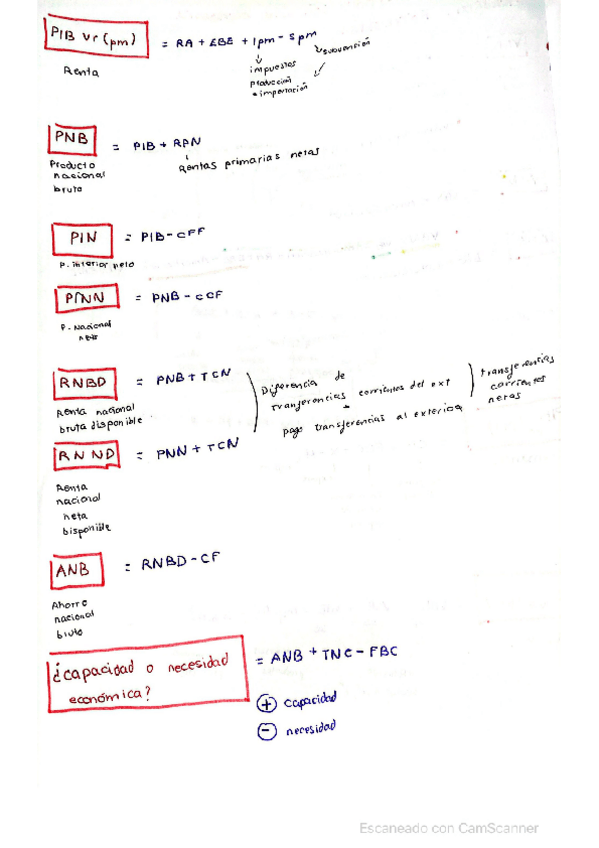 PIB Vr (pm) = RA + EBE + Ipm - Spm
Renta
impuestos
producción
+ importación
subvención
PNB = PIB + RPN
Producto
nacional
bruto
Rentas primarias netas
PIN = PIB - CFF
P. interior neto
PNN = PNB - CCF
P. Nacional
neto
RNBD = PNB + TCN
Renta nacional
bruta disponible
Diferencia de
Tranferencias corrientes del ext
-
pago transferencias al exterior
transferencias
corrientes
netas
RNND = PNN + TCN
Renta
nacional
neta
disponible
ANB = RNBD - CF
Ahorro
nacional
bruto
¿capacidad o necesidad
económica?
= ANB + TNC - FBC
+ capacidad
- necesidad
Escaneado con CamScanner